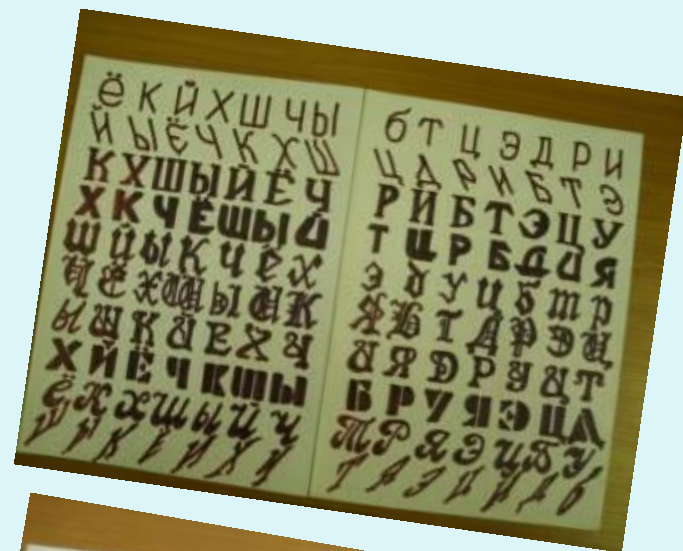 Ё К Й Х Ш Ч Ы
Й Ы Ё Ч К Х Ш
К Х Ш Ы Й Ё Ч
Х К Ч Ё Ш Ы Й
Ш Й Ы К Ч Ё Х
Й Ё Х Ш Ы Ч К
Ы Ш К Й Ё Х Ч
Х Й Ё Ч К Ш Ы
Ё К Х Ш Ы Й Ч
Ш Ы К Ё Й Х Ч
б Т Ц Э Д Р И
Ц Д Р И Б Т Э
Р И Б Т Э Ц У
Т Ц Р Б Д И Я
Э У Ц б т р
Я Б Т Д Р Э Ц
И Я Э Р У Ц Т
Б Р У Я Э Ц Д
Т Р Я Э Ц Б У
Т Э Ц И Д б